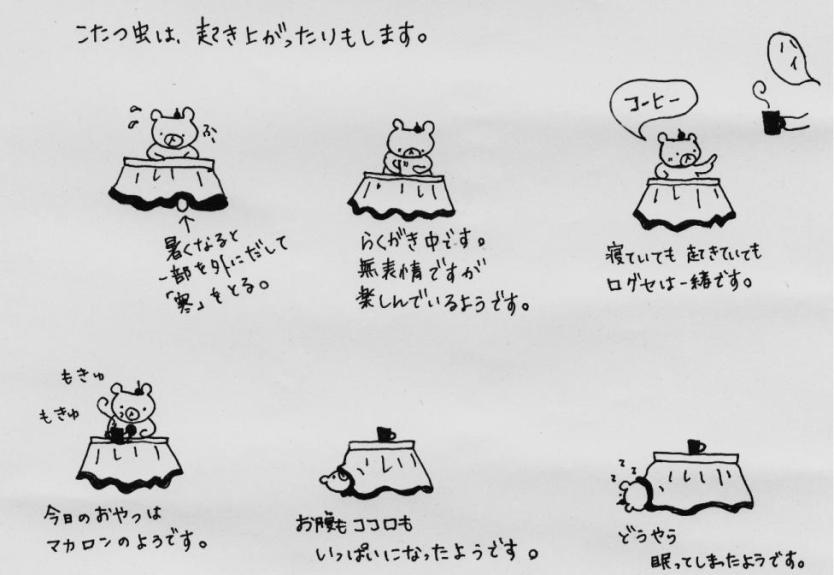 こたつ虫は、起き上がったりもします。
ふぅ
暑くなると
一部を外にだして
「寒」をとる。
らくがき中です。
無表情ですが
楽しんでいるようです。
コーヒー
ハイ
寝ていても 起きていても
口グセは一緒です。
もきゅ
もきゅ
今日のおやつは
マカロンのようです。
お腹もココロも
いっぱいになったようです。
zzzz
どうやら
眠ってしまったようです。